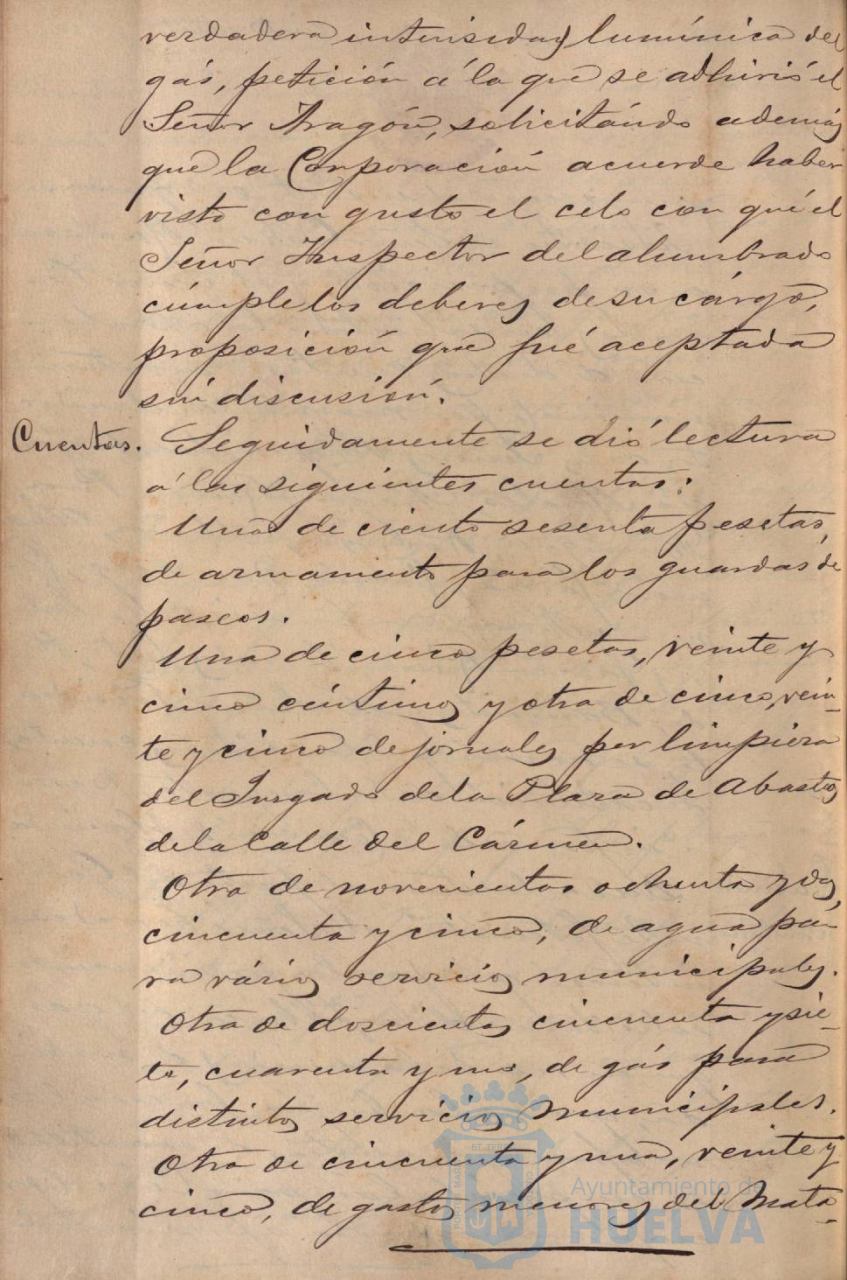 verdadera intensidad lumínica del
gás, petición á la que se adhirió el
Señor Aragón, solicitándo además
que la Corporación acuerde haber
visto con gusto el celo con qué el
Señor Inspector del alumbrado
cúmple los deberes de su cárgo,
proposición que fué aceptada
sin discusión.
Cuentas. Seguidamente se dió lectura
á las siguientes cuentas:
Una de ciento sesenta pesetas,
de armamento para los guardas de
paseos.
Una de cinco pesetas, veinte y
cinco céntimos y otra de cinco, vein-
te y cinco de jornales por limpieza
del Juzgado de la Plaza de Abastos
de la Calle del Cármen.
Otra de novecientas ochenta y dos,
cincuenta y cinco, de agua pa-
ra vários servicios municipales.
Otra de doscientas cincuenta y sie-
te, cuarenta y uno, de gás para
distintos servicios municipales.
Otra de cincuenta y una, veinte y
cinco, de gastos menores del Mata-
Ayuntamiento de
HUELVA